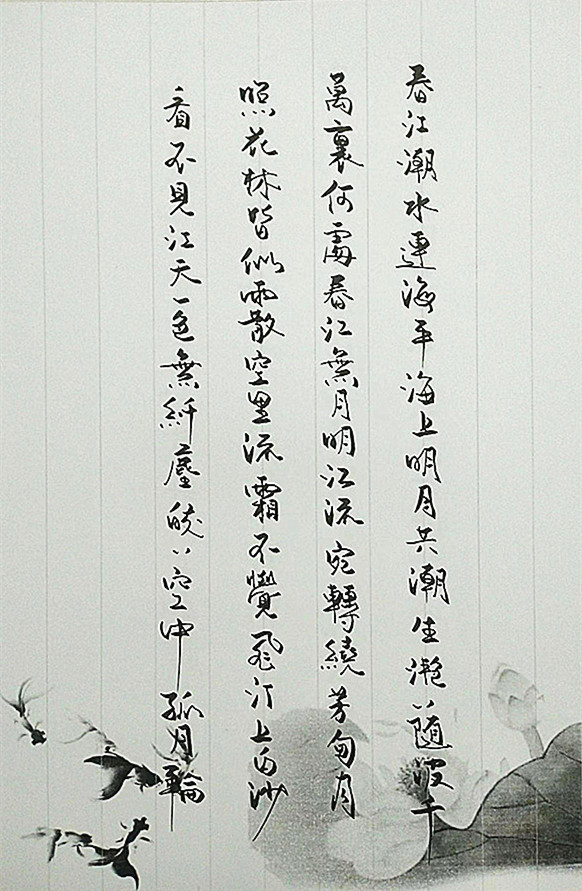 春江潮水連海平海上明月共潮生灔〻隨波千
萬裏何處春江無月明江流宛轉繞芳甸月
照花林皆似霰空里流霜不覺飛汀上白沙
看不見江天一色無纤塵皎〻空中孤月輪